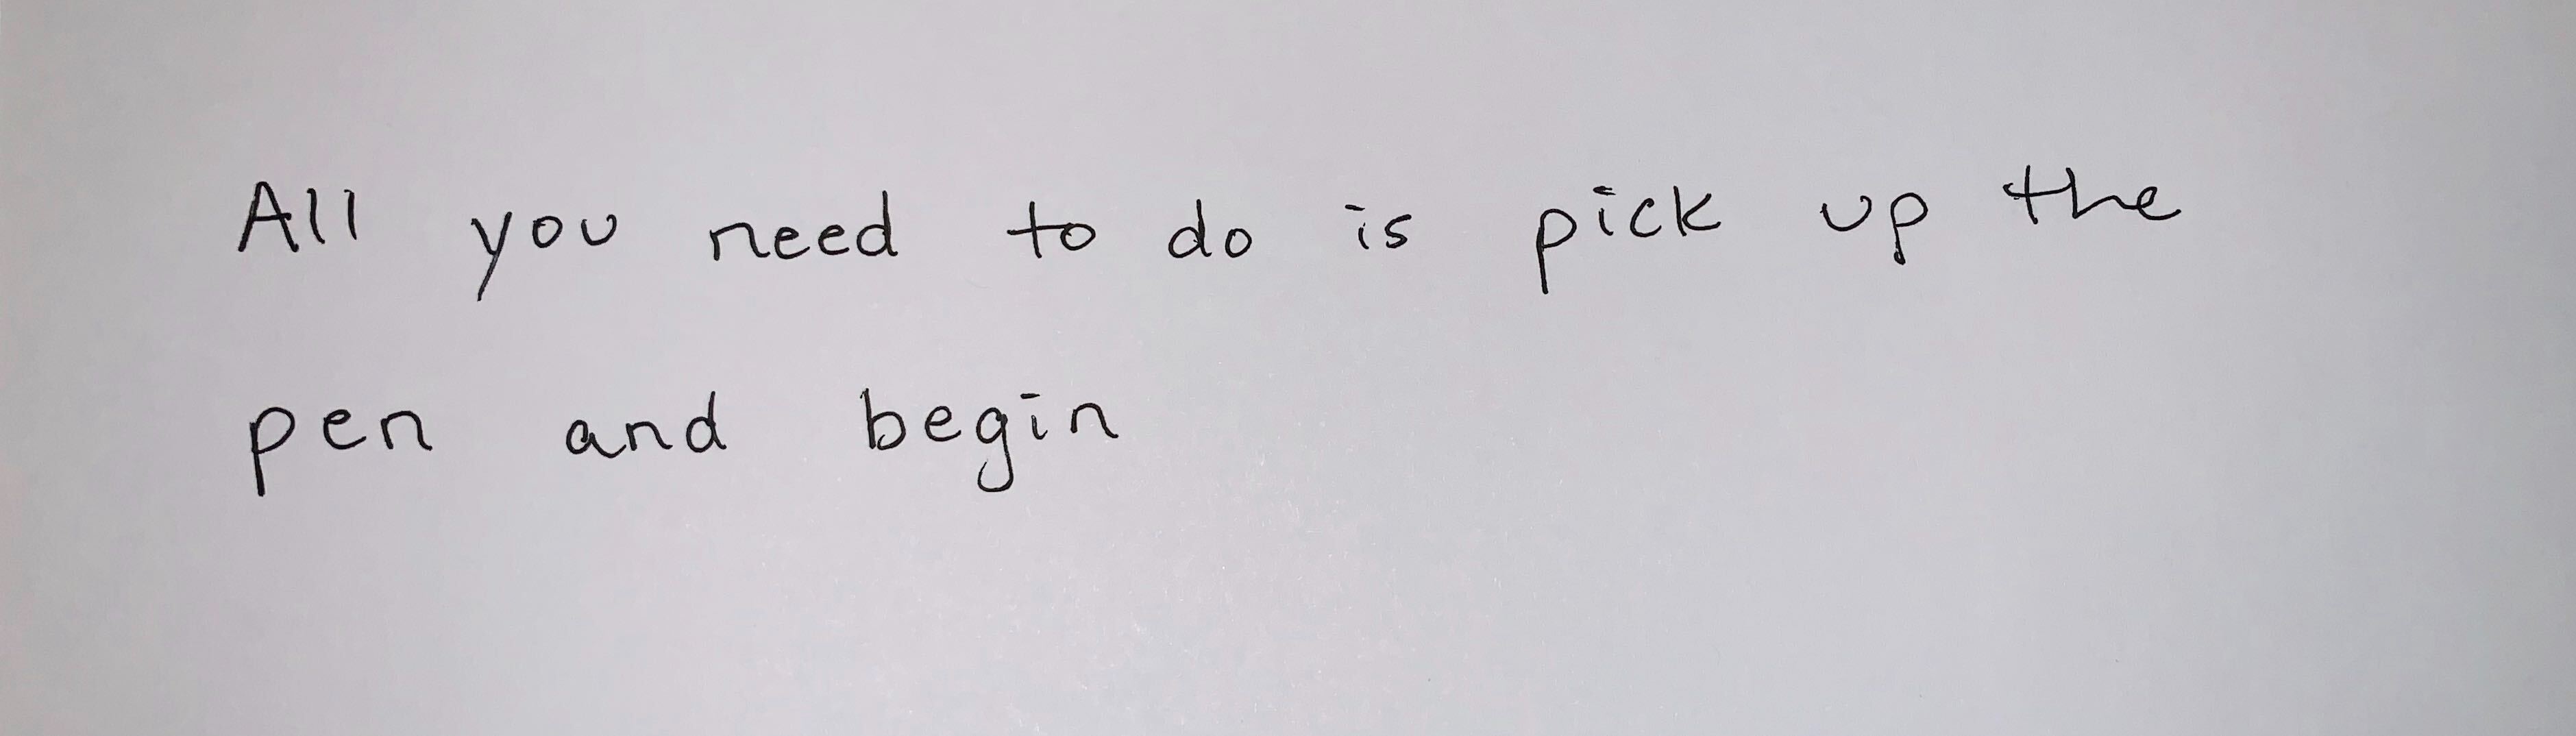 All you need to do is pick up the
pen and begin